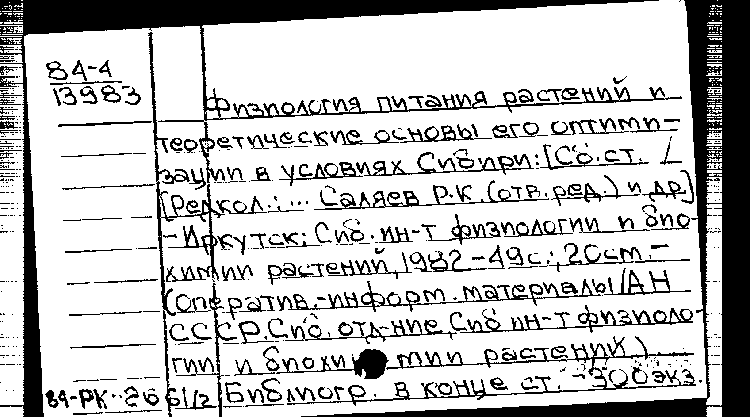 84-4
13983
Физиология питания растений и
теоретические основы его оптими-
зации в условиях Сибири: [Сб. ст. /
[Редкол.: ... Саляев Р.К. (отв. ред.) и др.]
- Иркутск: Сиб. ин-т физиологии и био-
химии растений, 1982 - 49с.; 20см. -
(Оператив.-информ. материалы / АН
СССР. Сиб. отд-ние, Сиб ин-т физиоло-
гии и биохимии растений)
84-РК Библиогр. в конце ст. - 300экз.